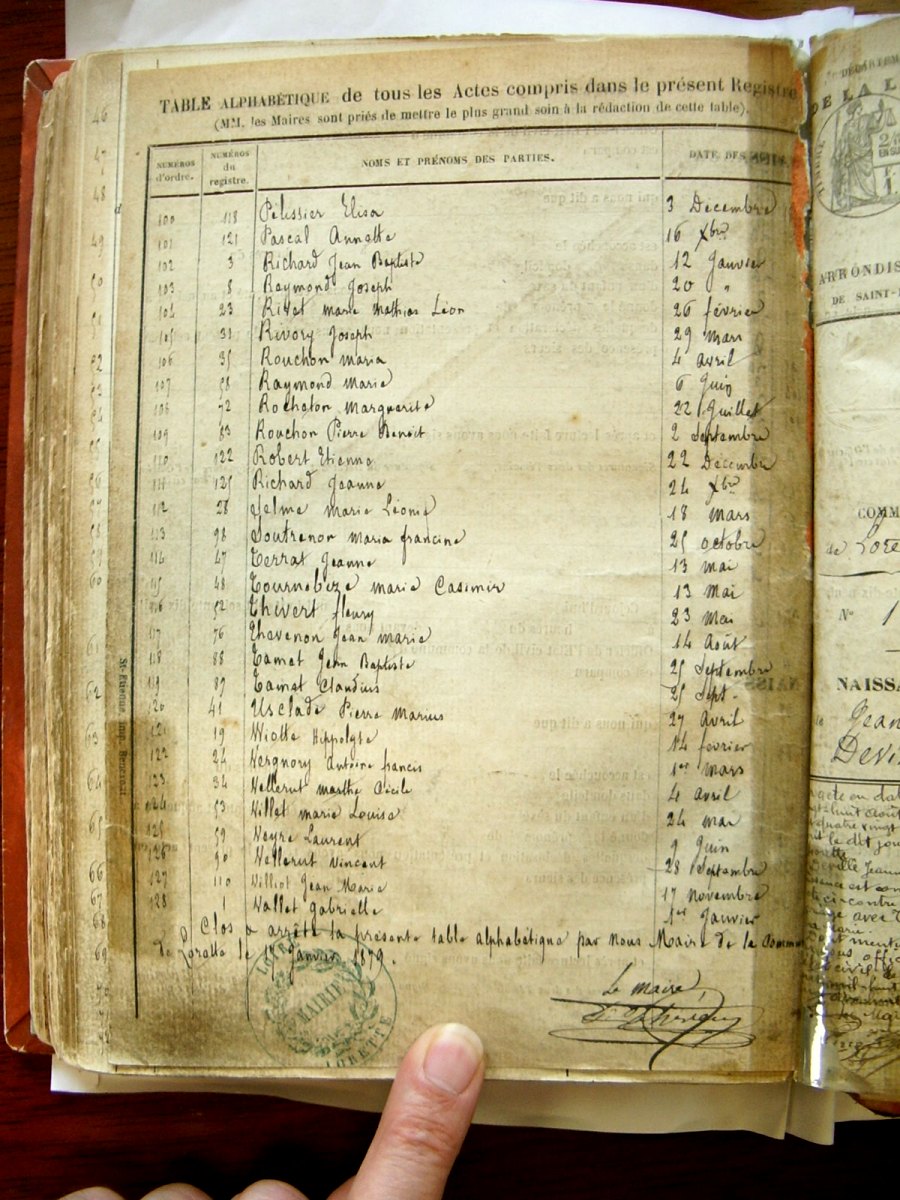 TABLE ALPHABÉTIQUE de tous les Actes compris dans le présent Registre
(MM. les Maires sont priés de mettre le plus grand soin à la rédaction de cette table).
NUMÉROS d'ordre. NUMÉROS du registre. NOMS ET PRÉNOMS DES PARTIES. DATE DES
100 118 Pélissier Elisa 3 Decembre
101 121 Pascal Annette 16 Xbre
102 3 Richard Jean Baptiste 12 Janvier
103 8 Raymond Joseph 20 "
104 23 Rivat marie Mathias Léon 26 février
105 31 Rivory Joseph 29 mars
106 35 Rouchon maria 4 avril
107 58 Raymond Marie 6 Juin
108 72 Rocheton Marguerite 22 Juillet
109 83 Rouchon Pierre Benoit 2 Septembre
110 122 Robert Etienne 22 Décembre
111 125 Richard Jeanne 24 Xbre
112 28 Selme Marie Léonie 18 mars
113 98 Soutrenon maria francine 25 octobre
114 47 Terrat Jeanne 13 mai
115 48 Tournebize marie Casimir 13 Mai
116 52 Thivert fleury 23 Mai
117 76 Thevenon Jean marie 14 Août
118 88 Tamet Jean Baptiste 25 Septembre
119 89 Tamet Claudius 25 Sept.
120 41 Usclade Pierre Marius 27 avril
121 19 Violle Hippolyte 14 fevrier
122 24 Vergnory Antoine francis 1er mars
123 34 Vellerut marthe Cécile 4 avril
124 53 Villet marie Louise 24 mai
125 59 Veyre Laurent 9 Juin
126 90 Vellerut Vincent 28 Septembre
127 110 Villiot Jean Marie 17 novembre
128 1 Vallet Gabrielle 1er Janvier
Clos & arrêté la présente table alphabétique par nous Maire de la Commune
de Lorette le 17 Janvier 1879.
Le maire,
LOIRE
MAIRIE
LORETTE
St-Etienne, imp. Benevent
46
47
48
49
50
51
52
53
54
56
57
58
59
60
61
62
63
64
65
66
67
68
69
DÉPARTEM
DE LA L
ARRONDIS
DE SAINT-
COMM
de Lore
N° 1
NAISSA
Jean